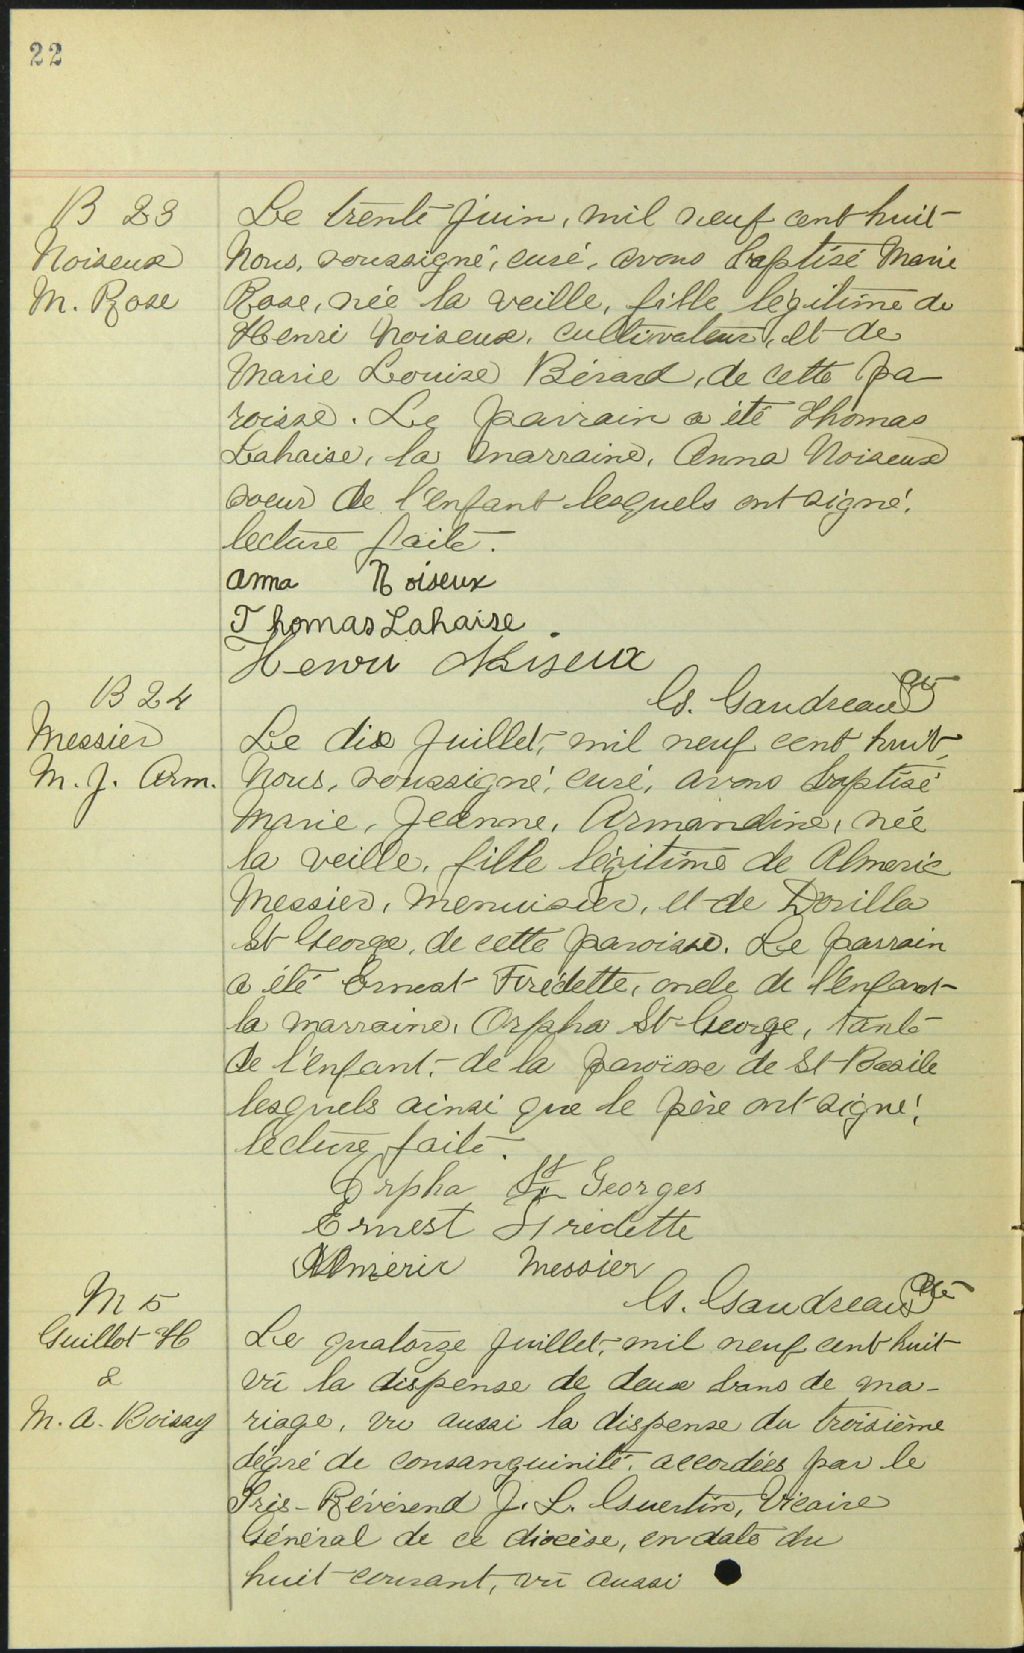 22
B 23
Noiseux
M. Rose
Le trente juin, mil neuf cent huit
Nous, soussigné, curé, avons baptisé Marie
Rose, née la veille, fille légitime de
Henri Noiseux, cultivateur, et de
Marie Louise Bérard, de cette pa-
roisse. Le parrain a été Thomas
Lahaise, la marraine, Anna Noiseux
soeur de l'enfant lesquels ont signé,
lecture faite.
Anna Noiseux
Thomas Lahaise
Henri Noiseux
G. Gaudreau Ptre
B 24
Messier
M. J. Arm.
Le dix Juillet, mil neuf cent huit,
Nous, soussigné, curé, avons baptisé
Marie, Jeanne, Armandine, née
la veille, fille légitime de Almeric
Messier, menuisier, et de Dorilla
St George, de cette paroisse. Le parrain
a été Ernest Frédette, oncle de l'enfant
la marraine, Orpha St-George, tante
de l'enfant, de la paroisse de St-Basile
lesquels ainsi que le père ont signé,
lecture faite.
Orpha St Georges
Ernest Fredette
Almeric Messier
G. Gaudreau Ptre
M 5
Guillot H
&
M. A. Boissy
Le quatorze juillet, mil neuf cent huit
vu la dispense de deux bans de ma-
riage, vu aussi la dispense du troisième
dégré de consanguinité, accordées par le
Très-Révérend J. L. Guertin, Vicaire
Général de ce diocèse, en date du
huit courant, vu aussi